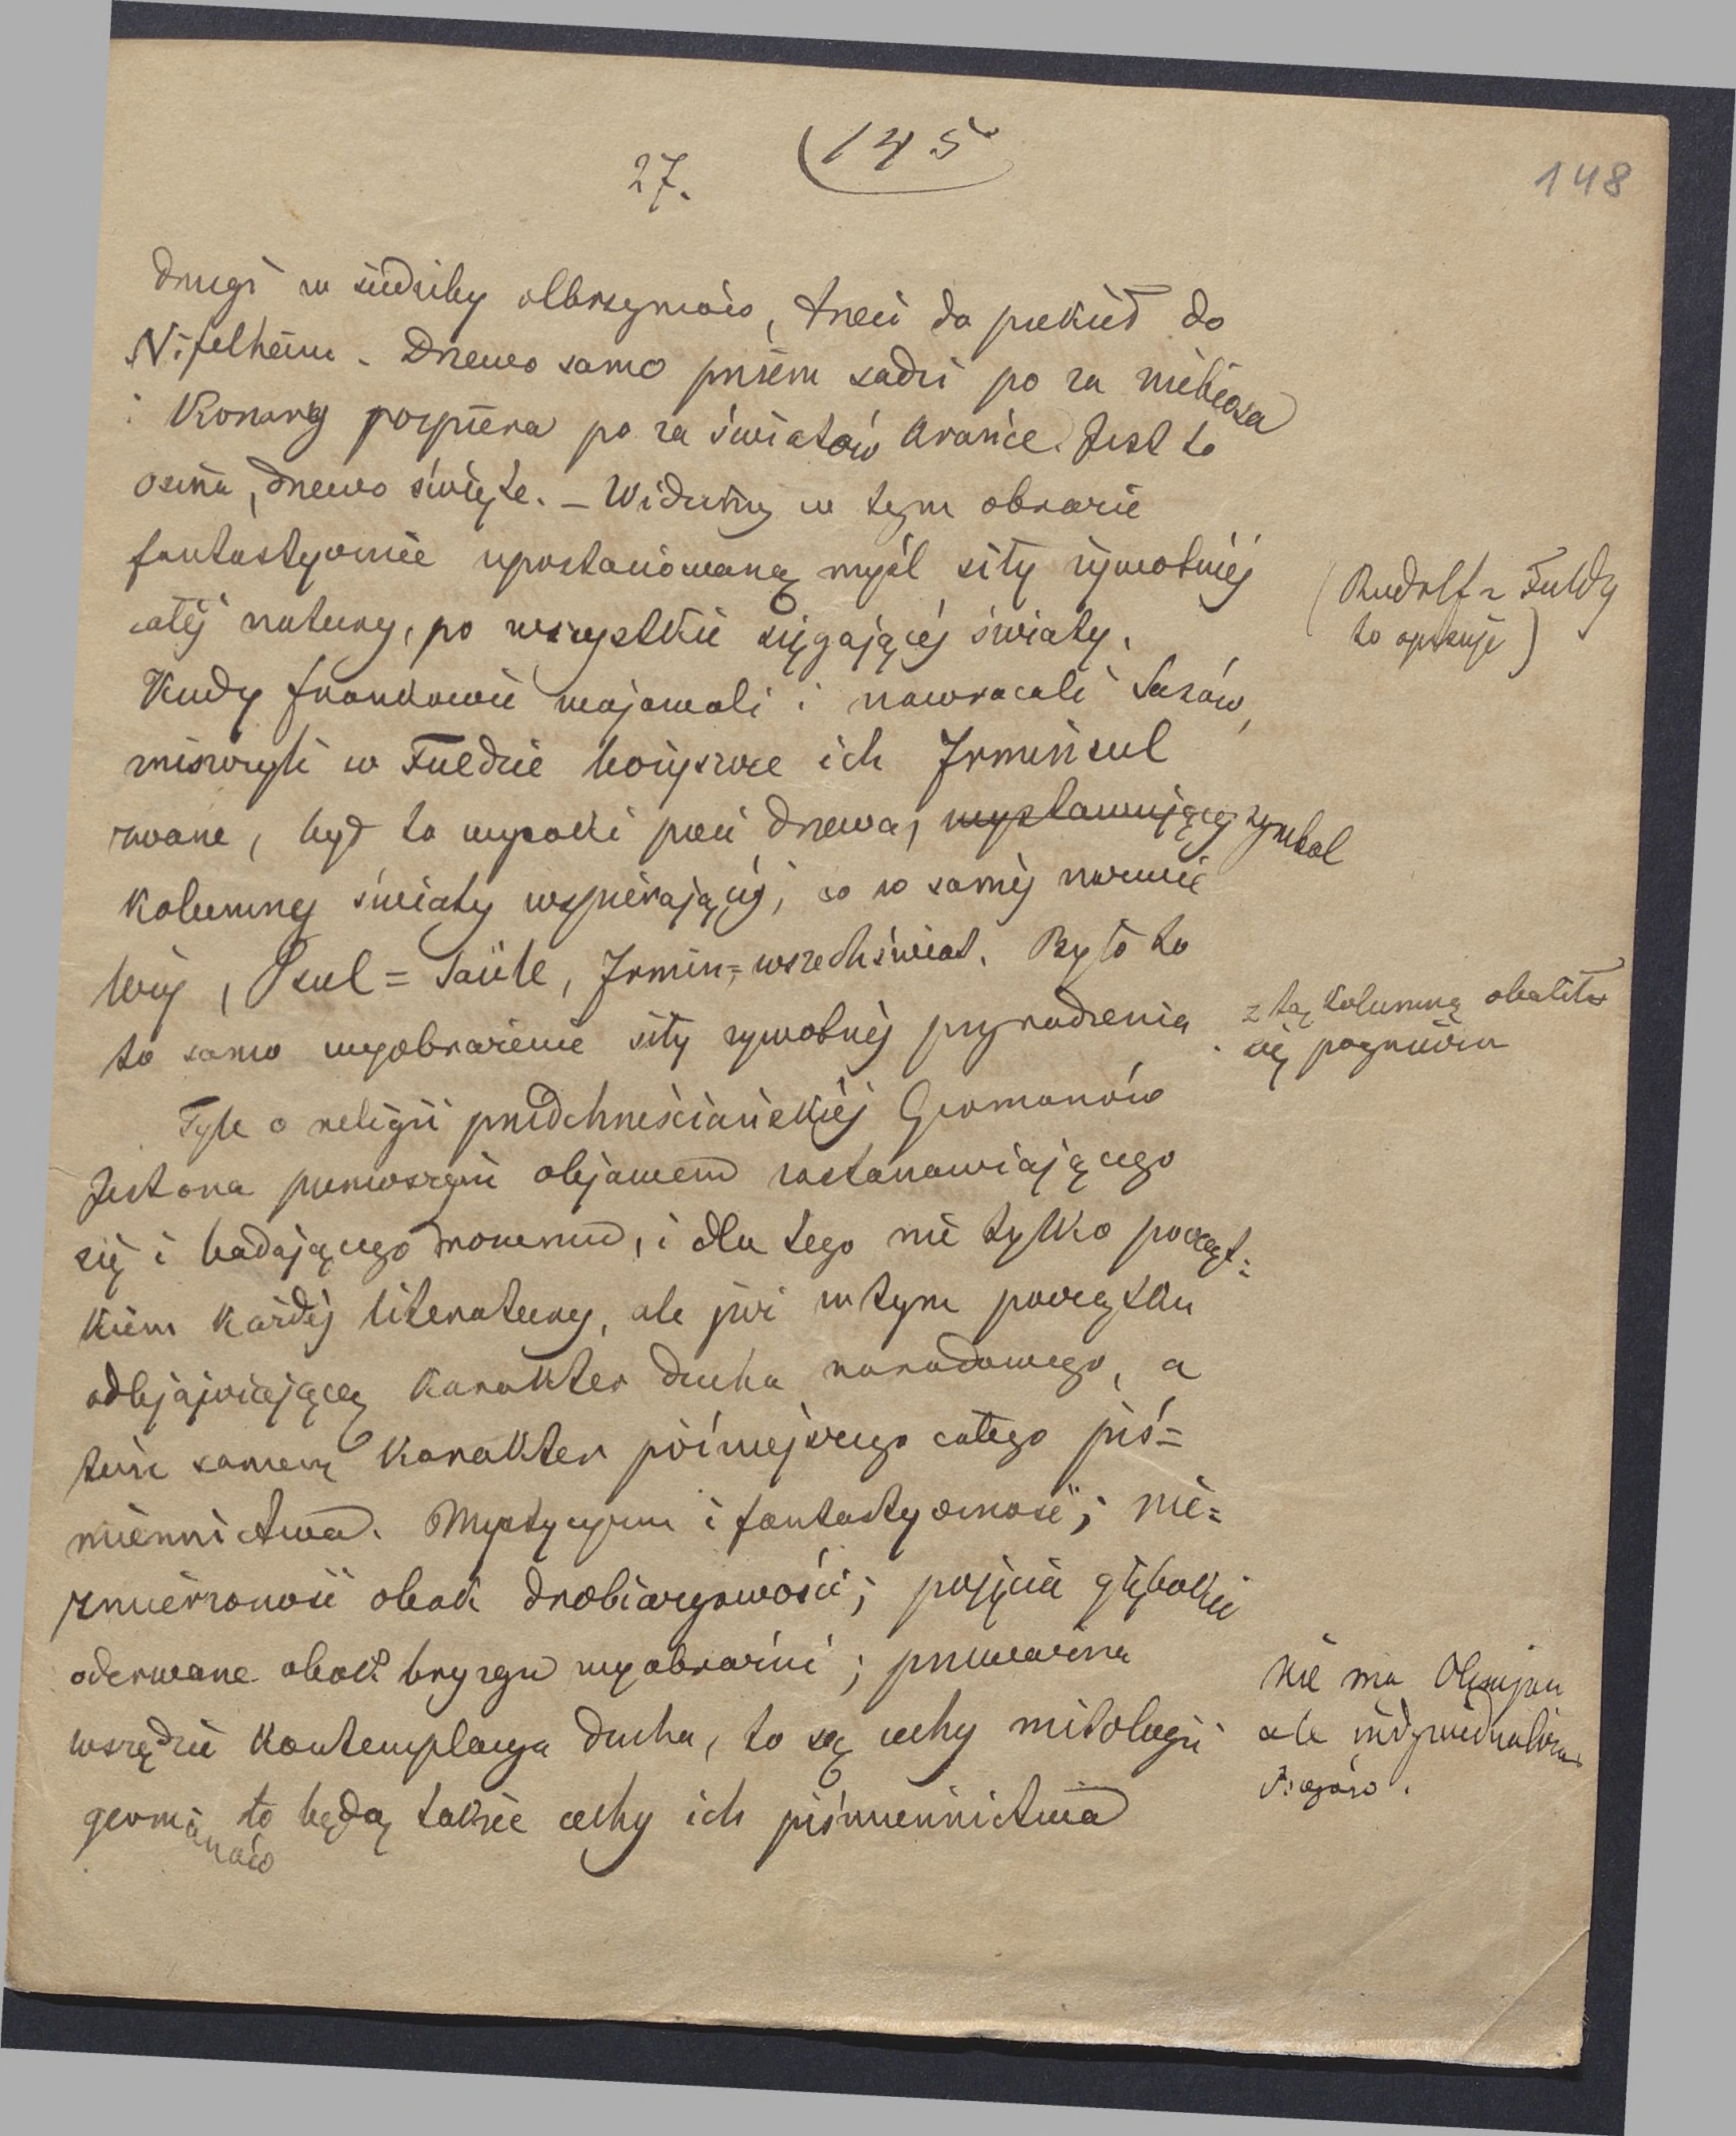 27.
145
148
drugi w siedziby olbrzymów, trzeci do piekieł do
Nifelheim. Drzewo samo pniem sadzi po za niebiosa
i Konary rozpiera po za światów krańce. Jest to
osina, drzewo święte. – Widzimy w tym obrazie
fantastycznie upostaciowaną myśl siły żywotnéj
całéj natury, po wszystkie sięgającéj światy.
(Rudolf z Fuldy
to opisuje)
Kiedy frankowie wojowali i nawracali Sasów,
zniszczyli w Fuldzie bożyszcze ich Irminsul
zwane, był to wysoki pień drzewa, wystawiającej symbol
kolumny światy wspierającéj, co w saméj nazwie
leży, sul = Saüle, Irmin = wszechświat. Było to
to samo wyobrażenie siły żywotnéj przyrodzenia.
z tą kolumną obaliło
się pogaństwo
Tyle o religii przedchrześciańskiéj Germanów
Jest ona pierwszym objawem zastanawiającego
się i badającego rozumu, i dla tego nie tylko począt=
kiem każdéj literatury, ale już w tym początku
odbjawiającą karakter ducha narodowego, a
tém samem karakter póżniejszego całego piś=
miennictwa. Mystycyzm i fantastyczność; nie=
zmierzoność obok drobiazgowości; pojęcia głębokie
oderwane obok bryzgu wyobraźni; przeważna
wszędzie kontemplacya ducha, to są cechy mitologii
germanów to będą także cechy ich piśmiennictwa
Nie ma Olympu
ale
Bogów.